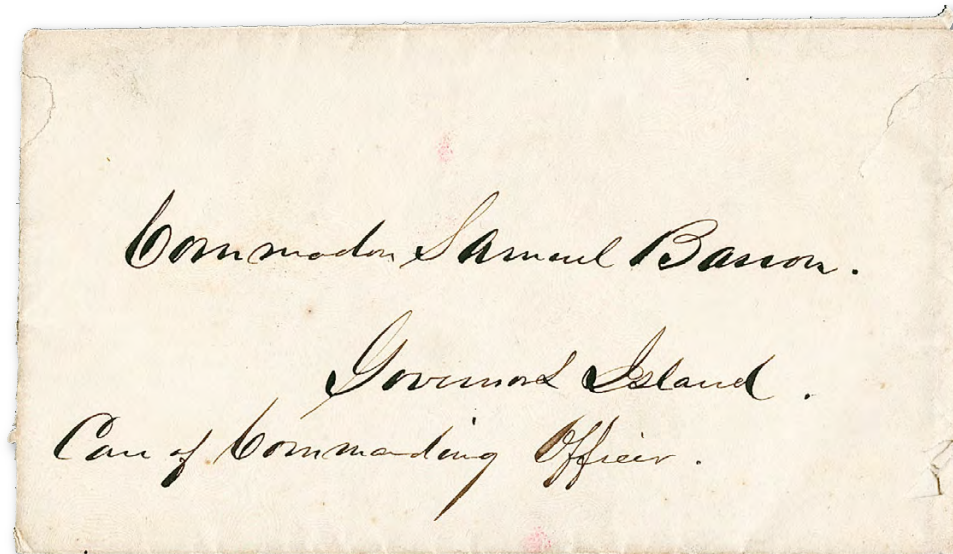 Commodore Samuel Barron.
Governors Island.
Care of Commanding Officer.